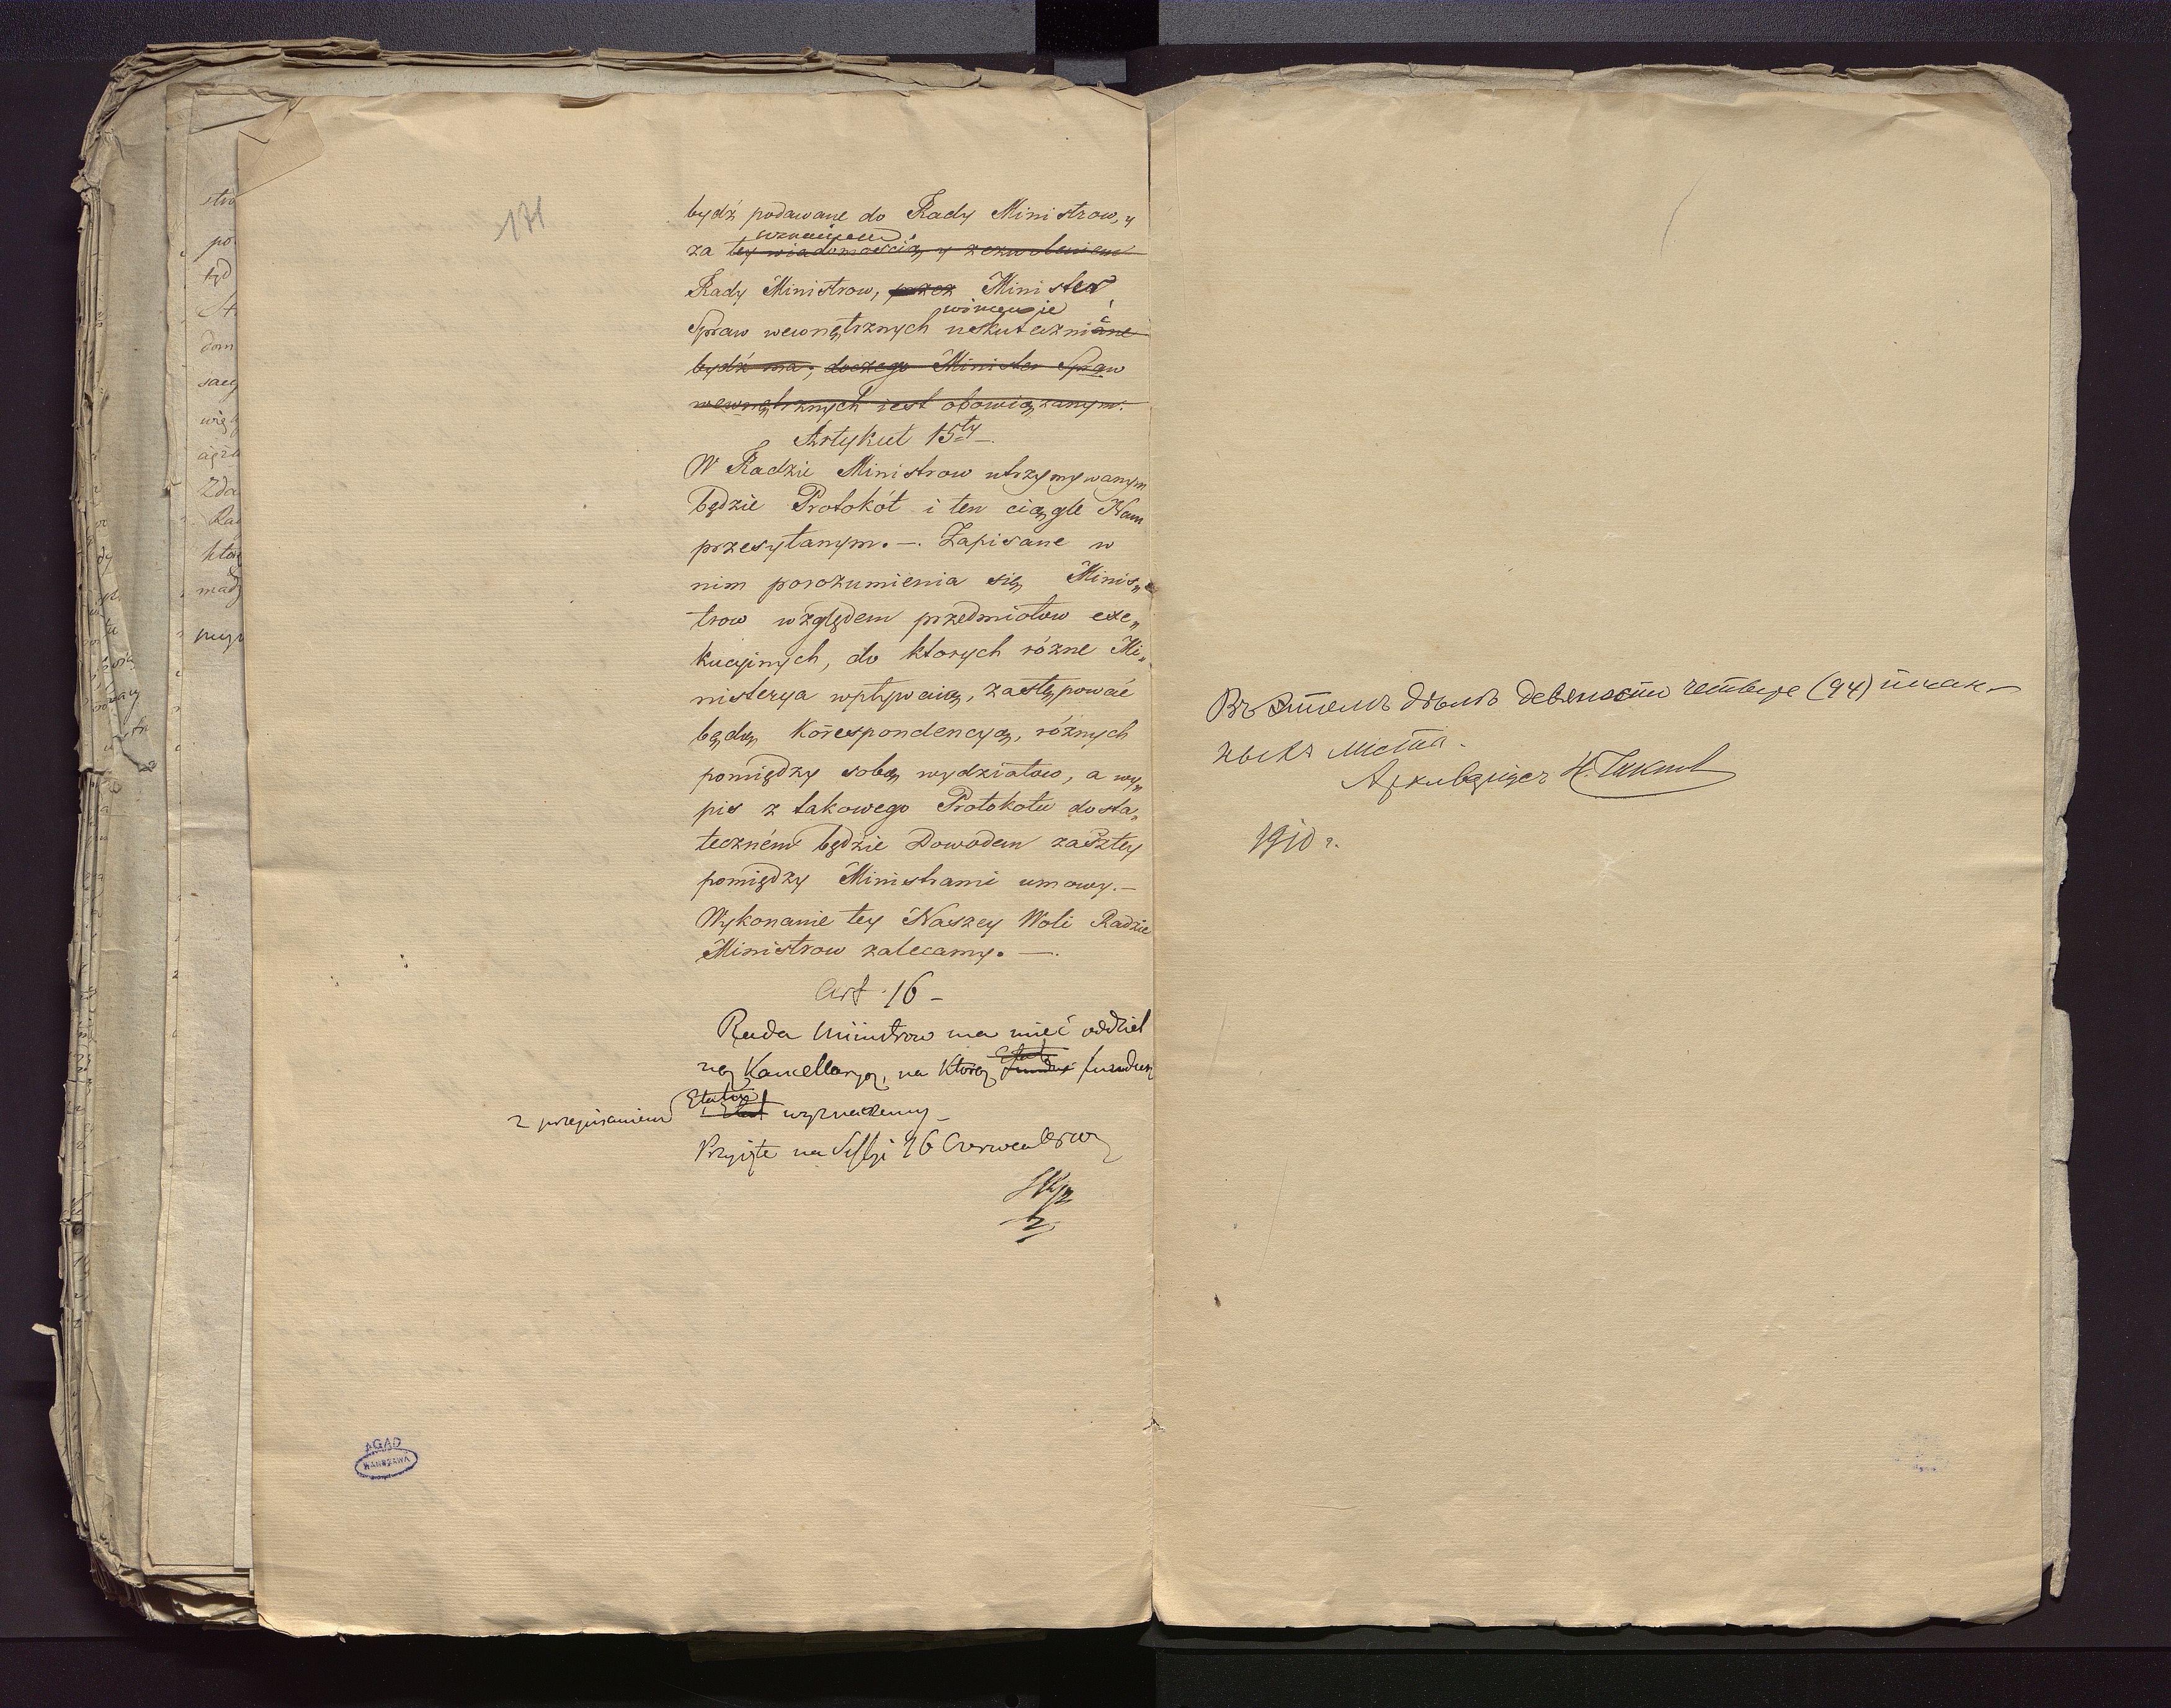 171
bydź podawane do Rady Ministrow, y
uznaniem
za tey wiadomością y zezwoleniem
Rady Ministrow, przez Minister
winien je
Spraw wewnętrznych uskuteczniane
bydź ma, doczego Minister Spraw
wewnętrznych iest obowiązanym.
Artykuł 15ty —
W Radzie Ministrow utrzymywanym
będzie Protokół i ten ciągle Nam
przesyłanym. —. Zapisane w
nim porozumienia się Minis„
trow względem przedmiotow exe„
kucyinych, do ktorych różne Mi„
nisterya wpływaią, zastępować
będą korespondencyą, różnych
pomiędzy sobą wydziałow, a wy„
pis z takowego Protokołu dosta„
teczném będzie Dowodem zaszłey
pomiędzy Ministrami umowy. —
Wykonanie tey Naszey Woli Radzie
Ministrow zalecamy. —.
Art. 16 —
Rada Ministrow ma mieć oddziel
Etat
ną Kancellaryą, na ktorą fundusz fundusz
z przepisaniem Etatow
Etat wyznaczemy —
Przyięte na Sessyi 16 Czerwca
AGAD
WARSZAWA
Въ этомъ дѣлѣ девяносто четыре (94) писан-
ныхъ листа.
Архиваріусъ
1910 г.